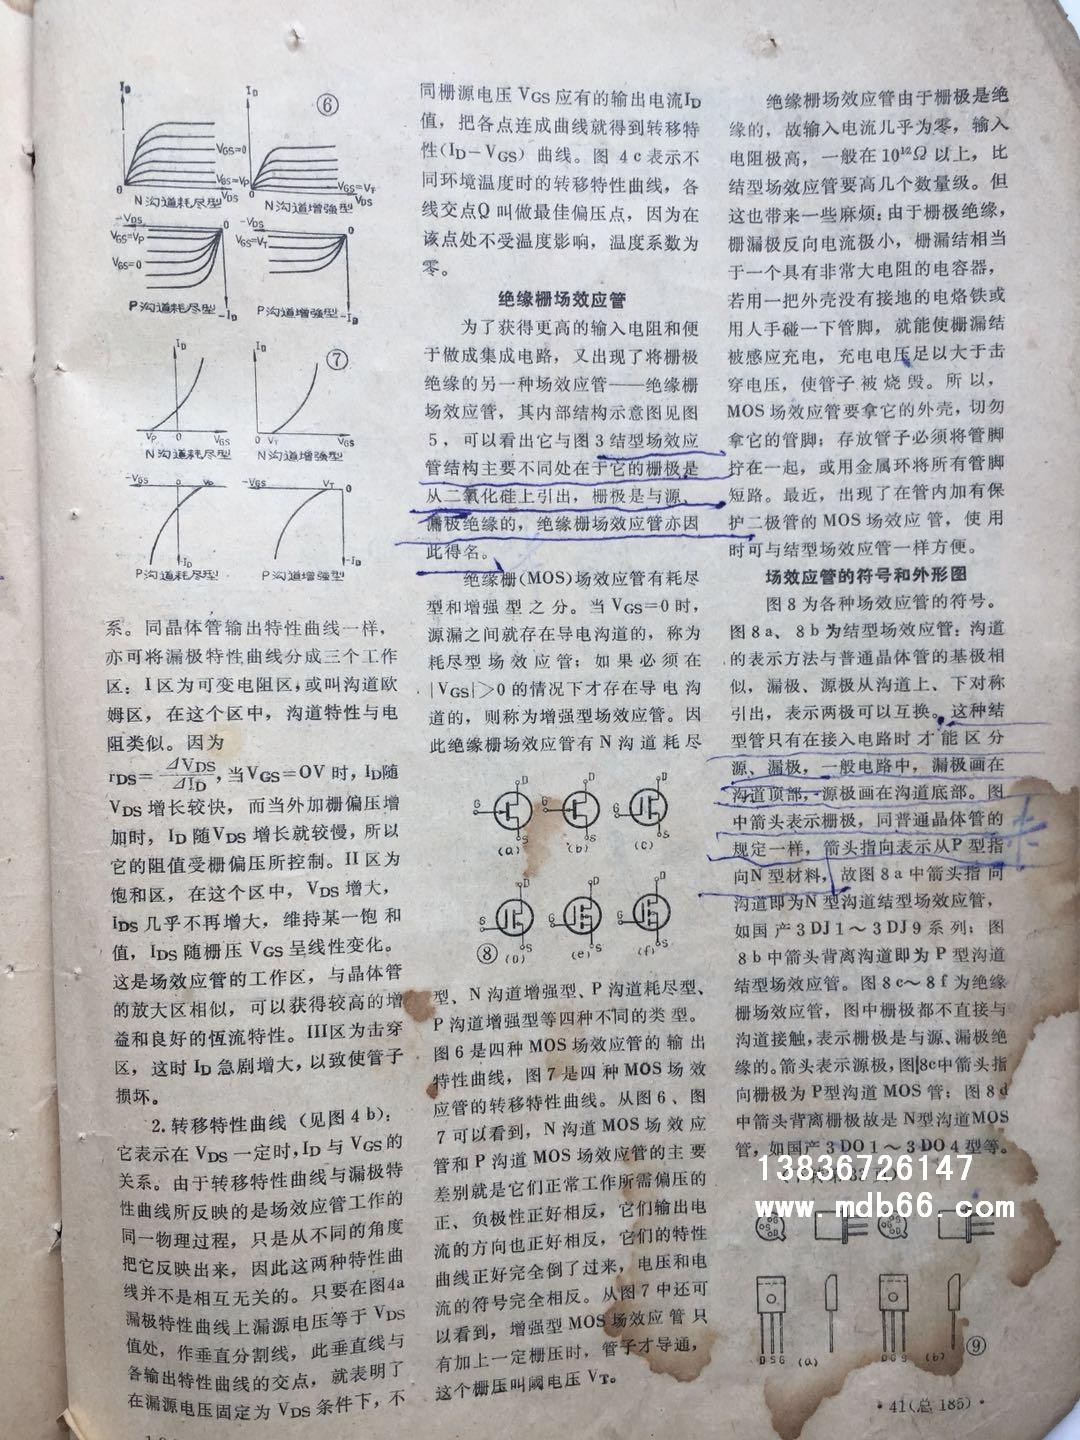 ⑥
I_D
I_D
V_GS=0
V_GS=V_P
V_DS
V_GS=V_T
V_DS
0
0
N沟道耗尽型
N沟道增强型
-V_DS
0
-V_DS
0
V_GS=V_P
V_GS=V_T
V_GS=0
P沟道耗尽型
-I_D
P沟道增强型
-I_D
⑦
I_D
I_D
V_P
0
V_GS
0
V_T
V_GS
N沟道耗尽型
N沟道增强型
-V_GS
0
V_P
-V_GS
V_T
0
-I_D
-I_D
P沟道耗尽型
P沟道增强型
系。同晶体管输出特性曲线一样，
亦可将漏极特性曲线分成三个工作
区：I区为可变电阻区，或叫沟道欧
姆区，在这个区中，沟道特性与电
阻类似。因为
r_DS=ΔV_DS/ΔI_D，当V_GS=0V时，I_D随
V_DS增长较快，而当外加栅偏压增
加时，I_D随V_DS增长就较慢，所以
它的阻值受栅偏压所控制。II区为
饱和区，在这个区中，V_DS增大，
I_DS几乎不再增大，维持某一饱和
值，I_DS随栅压V_GS呈线性变化。
这是场效应管的工作区，与晶体管
的放大区相似，可以获得较高的增
益和良好的恆流特性。III区为击穿
区，这时I_D急剧增大，以致使管子
损坏。
2.转移特性曲线（见图4b）：
它表示在V_DS一定时，I_D与V_GS的
关系。由于转移特性曲线与漏极特
性曲线所反映的是场效应管工作的
同一物理过程，只是从不同的角度
把它反映出来，因此这两种特性曲
线并不是相互无关的。只要在图4a
漏极特性曲线上漏源电压等于V_DS
值处，作垂直分割线，此垂直线与
各输出特性曲线的交点，就表明了
在漏源电压固定为V_DS条件下，不
同栅源电压V_GS应有的输出电流I_D
值，把各点连成曲线就得到转移特
性(I_D－V_GS)曲线。图4c表示不
同环境温度时的转移特性曲线，各
线交点Q叫做最佳偏压点，因为在
该点处不受温度影响，温度系数为
零。
绝缘栅场效应管
为了获得更高的输入电阻和便
于做成集成电路，又出现了将栅极
绝缘的另一种场效应管——绝缘栅
场效应管，其内部结构示意图见图
5，可以看出它与图3结型场效应
管结构主要不同处在于它的栅极是
从二氧化硅上引出，栅极是与源、
漏极绝缘的，绝缘栅场效应管亦因
此得名。
绝缘栅(MOS)场效应管有耗尽
型和增强型之分。当V_GS=0时，
源漏之间就存在导电沟道的，称为
耗尽型场效应管；如果必须在
|V_GS|>0的情况下才存在导电沟
道的，则称为增强型场效应管。因
此绝缘栅场效应管有N沟道耗尽
G D S (a)
G D S (b)
G D S (c)
⑧
G D S (D)
G D S (e)
G D S (f)
型、N沟道增强型、P沟道耗尽型、
P沟道增强型等四种不同的类型。
图6是四种MOS场效应管的输出
特性曲线，图7是四种MOS场效
应管的转移特性曲线。从图6、图
7可以看到，N沟道MOS场效应
管和P沟道MOS场效应管的主要
差别就是它们正常工作所需偏压的
正、负极性正好相反，它们输出电
流的方向也正好相反，它们的特性
曲线正好完全倒了过来，电压和电
流的符号完全相反。从图7中还可
以看到，增强型MOS场效应管只
有加上一定栅压时，管子才导通，
这个栅压叫阈电压V_T。
绝缘栅场效应管由于栅极是绝
缘的，故输入电流几乎为零，输入
电阻极高，一般在10¹²Ω以上，比
结型场效应管要高几个数量级。但
这也带来一些麻烦：由于栅极绝缘，
栅漏极反向电流极小，栅漏结相当
于一个具有非常大电阻的电容器，
若用一把外壳没有接地的电烙铁或
用人手碰一下管脚，就能使栅漏结
被感应充电，充电电压足以大于击
穿电压，使管子被烧毁。所以，
MOS场效应管要拿它的外壳，切勿
拿它的管脚；存放管子必须将管脚
拧在一起，或用金属环将所有管脚
短路。最近，出现了在管内加有保
护二极管的MOS场效应管，使用
时可与结型场效应管一样方便。
场效应管的符号和外形图
图8为各种场效应管的符号。
图8a、8b为结型场效应管：沟道
的表示方法与普通晶体管的基极相
似，漏极、源极从沟道上、下对称
引出，表示两极可以互换。这种结
型管只有在接入电路时才能区分
源、漏极，一般电路中，漏极画在
沟道顶部，源极画在沟道底部。图
中箭头表示栅极，同普通晶体管的
规定一样，箭头指向表示从P型指
向N型材料，故图8a中箭头指向
沟道即为N型沟道结型场效应管，
如国产3DJ1～3DJ9系列；图
8b中箭头背离沟道即为P型沟道
结型场效应管。图8c～8f为绝缘
栅场效应管，图中栅极都不直接与
沟道接触，表示栅极是与源、漏极绝
缘的。箭头表示源极，图8c中箭头指
向栅极为P型沟道MOS管；图8d
中箭头背离栅极故是N型沟道MOS
管，如国产3DO1～3DO4型等。
13836726147
www.mdb66.com
DSG (a)
DGS (b)
⑨
·41(总185)·